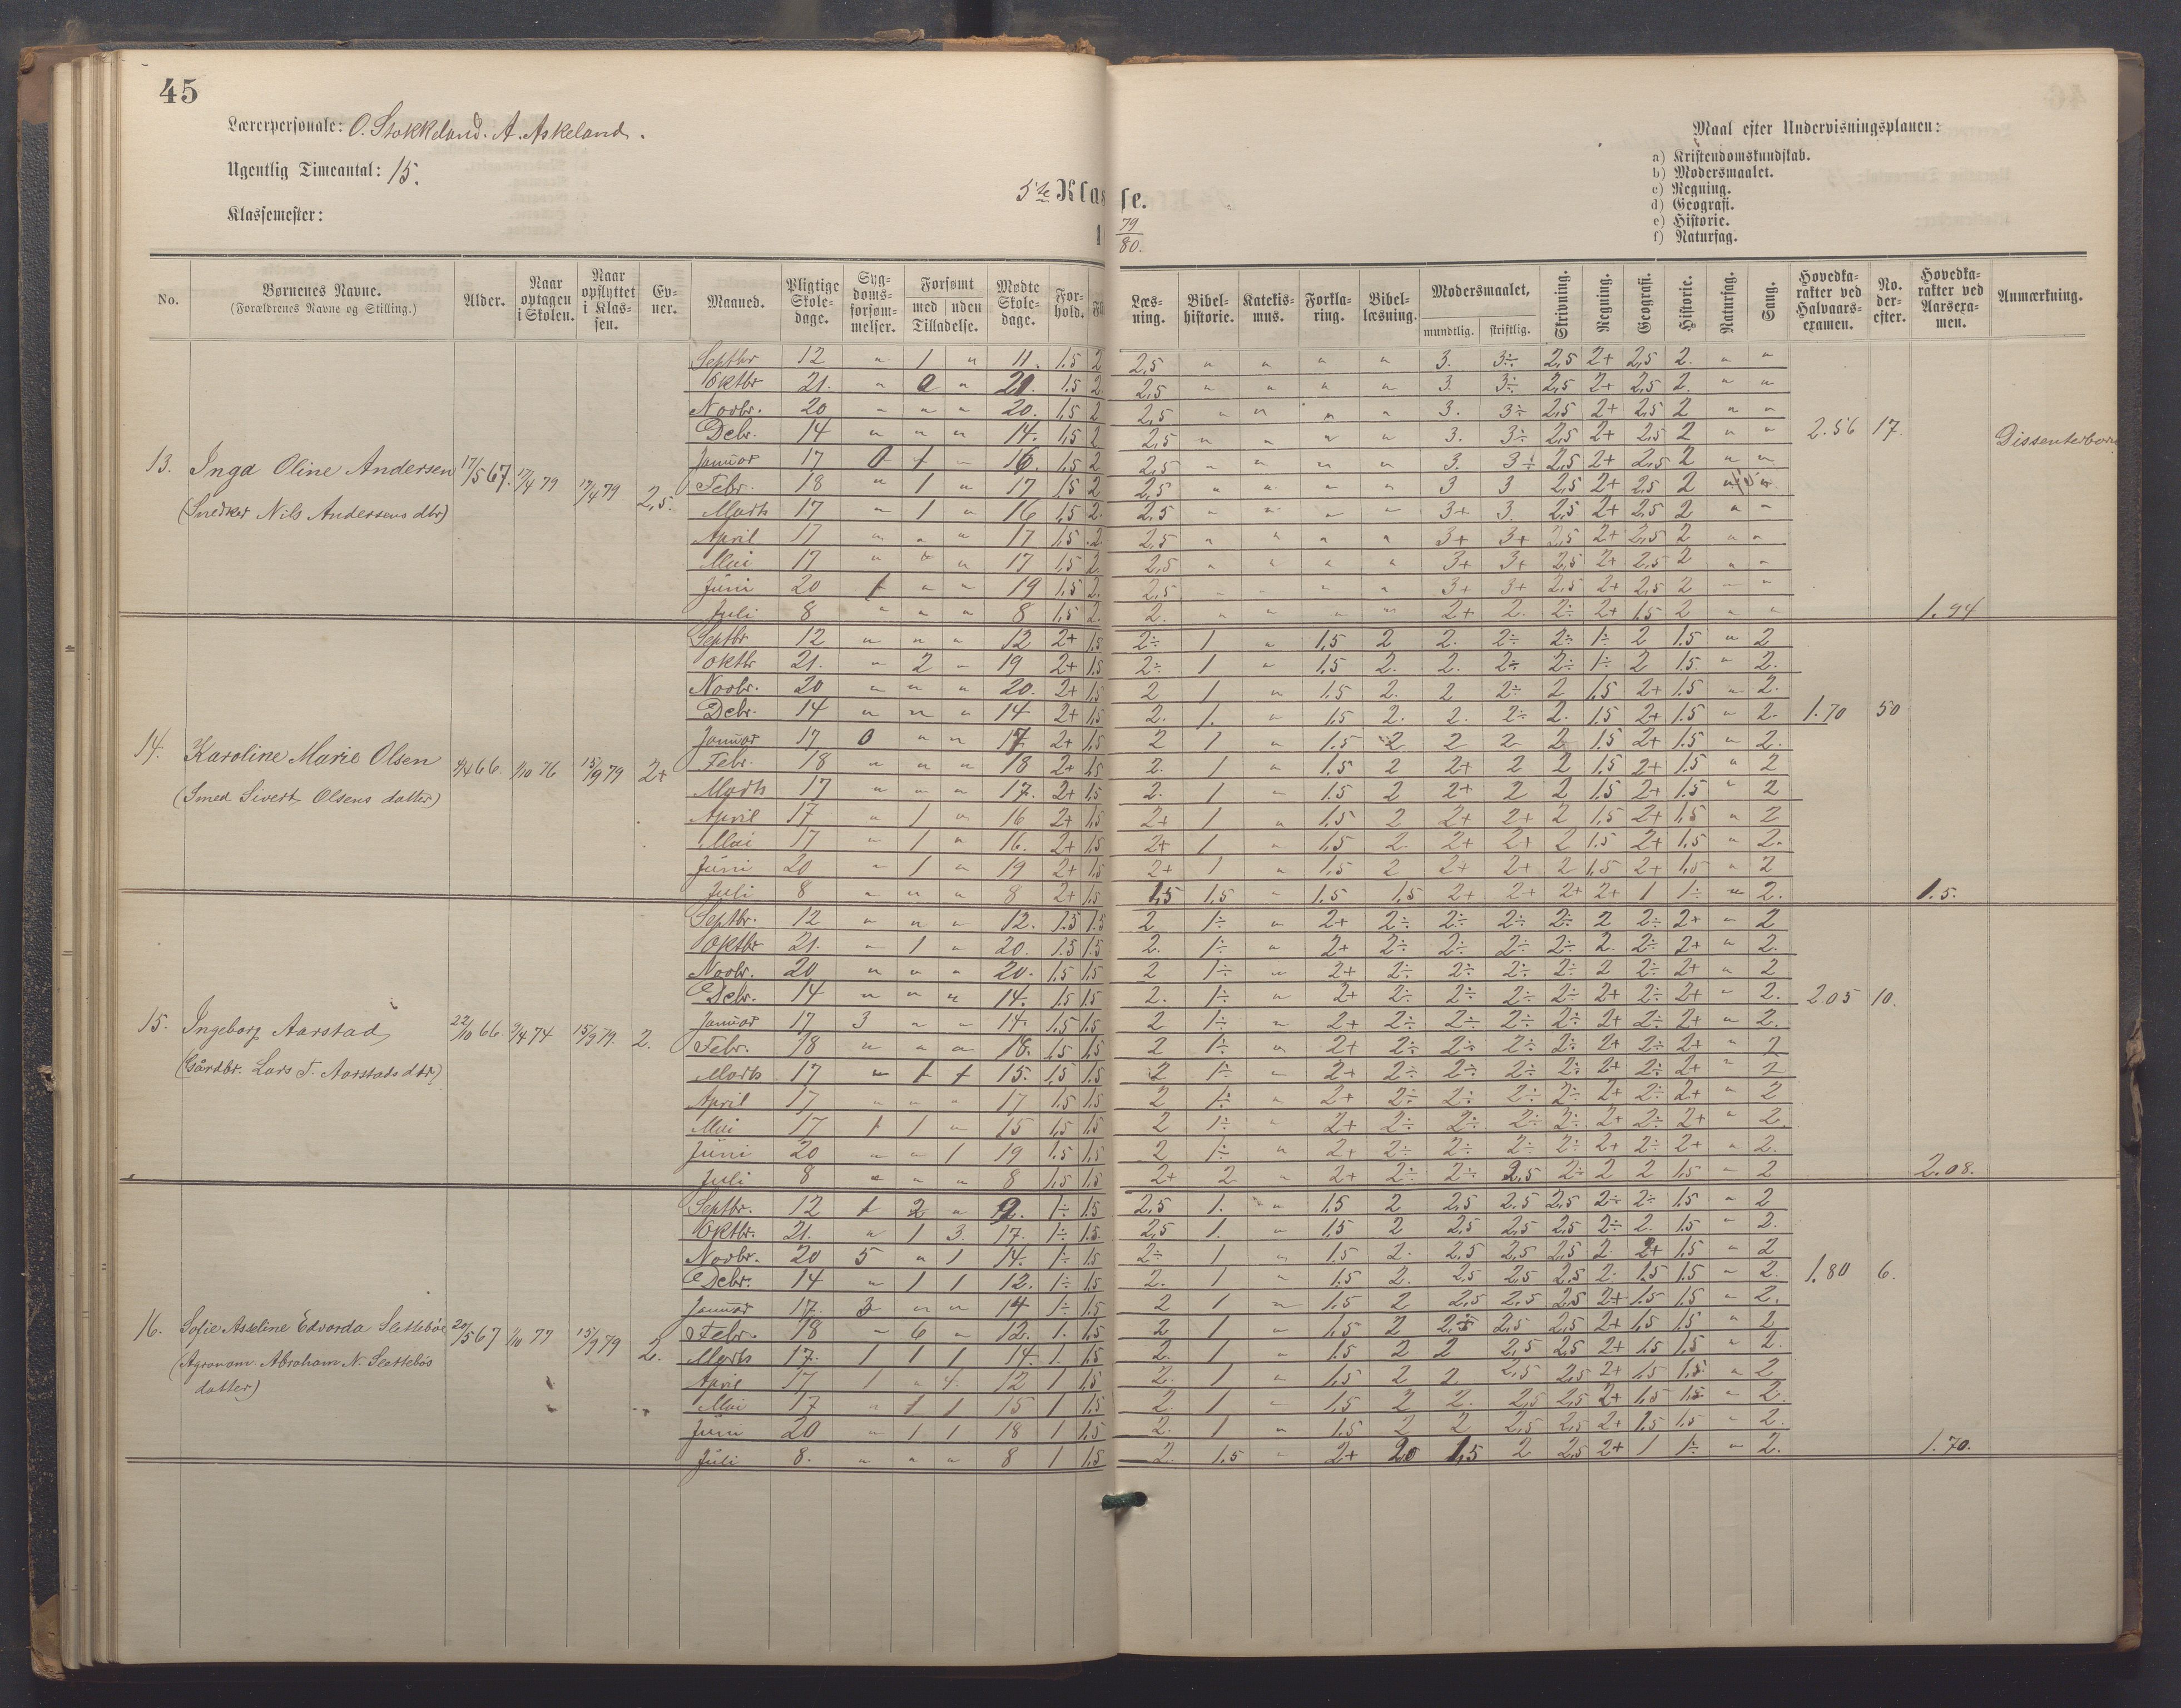 45
Lærerpersonale: O. Stokkeland. A. Askeland.
Ugentlig Timeantal: 15.
Klassemester:
5te Klasse.
1 79/80.
Maal efter Undervisningsplanen:
a) Kristendomskundskab.
b) Modersmaalet.
c) Regning.
d) Geografi.
e) Historie.
f) Naturfag.
No. Børnenes Navne. (Forældrenes Navne og Stilling.) Alder. Naar optagen i Skolen. Naar opflyttet i Klassen. Evner. Maaned. Pligtige Skoledage. Sygdomsforsømmelser. Forsømt med uden Tilladelse. Mødte Skoledage. Forhold. Læsning. Bibelhistorie. Katekismus. Forklaring. Bibellæsning. Modersmaalet, mundtlig. skriftlig. Skrivning. Regning. Geografi. Historie. Naturfag. Sang. Hovedkarakter ved Halvaarsexamen. No. derefter. Hovedkarakter ved Aarsexamen. Anmærkning.
Septbr 12 " 1 " 11. 1.5 2 2,5 " " " " 3. 3÷ 2,5 2+ 2,5 2. " "
Oktbr 21. " 0 " 21. 1.5 2. 2,5 " " " " 3. 3÷ 2,5 2+ 2,5 2. " "
Novbr. 20 " " " 20. 1,5 2 2,5 " " " " 3. 3÷ 2,5 2+ 2,5 2 " "
Debr. 14 " " " 14. 1,5 2 2,5 " " " " 3. 3÷ 2,5 2+ 2,5 2 " " 2.56 17.
Dissenterbarn
13. Inga Oline Andersen 17/5 67. 17/4 79 17/4 79 2,5.
(Snedker Nils Andersens dtr)
Januar 17 0 1 " 16. 1,5 2 2,5 " " " " 3. 3÷ 2,5 2+ 2,5 2 " "
Febr. 18 " 1 " 17 1,5 2 2,5 " " " " 3 3 2,5 2+ 2,5 2 " "
Marts 17 " 1 " 16 1,5 2. 2.5 " " " " 3+ 3. 2,5 2+ 2,5 2 " "
April 17 " " " 17 1,5 2 2,5 " " " " 3+ 3+ 2,5 2+ 2,5 2 " "
Mai 17 " " " 17 1,5 2. 2,5 " " " " 3+ 3+ 2,5 2+ 2,5 2 " "
Juni 20 1 " " 19 1,5 2. 2,5 " " " " 3+ 3+ 2,5 2+ 2,5 2 " "
Juli 8 " " " 8 1,5 2. 2. " " " " 2+ 2. 2÷ 2+ 1.5 2 " " 1.94
Septbr 12 " " " 12 2+ 1.5 2÷ 1 " 1,5 2 2. 2÷ 2÷ 1÷ 2 1.5 " 2
Oktbr 21. " 2 " 19 2+ 1.5 2÷ 1 " 1.5 2. 2. 2÷ 2÷ 1÷ 2 1.5. " 2.
Novbr. 20 " " " 20. 2+ 1,5 2 1 " 1.5 2. 2 2÷ 2 1,5 2+ 1.5 " 2.
Debr. 14 " " " 14 2+ 1,5 2. 1. " 1,5 2. 2. 2÷ 2. 1.5 2+ 1.5 " 2. 1.70 50
14. Karoline Marie Olsen 9/4 66. 1/10 76 15/9 79 2+
(Smed Sivert Olsens datter)
Januar 17 0 " " 17. 2+ 1,5 2 1 " 1.5 2 2 2 2 1.5 2+ 1.5 " 2.
Febr. 18 " " " 18 2+ 1,5 2. 1 " 1.5 2 2+ 2 2 1.5 2+ 1.5 " 2
Marts 17 " " " 17. 2+ 1,5 2. 1 " 1.5 2 2+ 2 2 1.5 2+ 1.5 " 2
April 17 " 1 " 16 2+ 1,5 2+ 1 " 1.5 2 2+ 2+ 2 1,5 2+ 1,5 " 2
Mai 17 " 1 " 16. 2+ 1,5 2+ 1 " 1,5 2. 2+ 2+ 2 1.5 2+ 1,5 " 2.
Juni 20 " 1 " 19 2+ 1,5 2+ 1 " 1,5 2 2+ 2+ 2 1,5 2+ 1,5 " 2
Juli 8 " " " 8 2+ 1,5 1,5 1,5 " 1.5 1,5 2+ 2+ 2+ 2+ 1 1÷ " 2. 1.5.
Septbr. 12 " " " 12. 1.5 1.5 2 1÷ " 2+ 2÷ 2÷ 2÷ 2÷ 2 2÷ 2+ " 2
Oktbr 21. " 1 " 20. 1.5 1.5 2. 1÷ " 2+ 2÷ 2÷ 2÷ 2÷ 2. 2÷ 2+ " 2.
Novbr. 20 " " " 20. 1,5 1,5 2 1÷ " 2+ 2÷ 2÷ 2÷ 2÷ 2 2÷ 2+ " 2
Debr. 14 " " " 14. 1.5 1.5 2. 1÷ " 2+ 2÷ 2÷ 2÷ 2÷ 2+ 2÷ 2+ " 2. 2.05 10.
15. Ingeborg Aarstad 22/10 66 9/4 74 15/9 79. 2.
(Gårdbr. Lars T. Aarstads dtr)
Januar 17 3 " " 14. 1,5 1,5 2 1÷ " 2+ 2÷ 2÷ 2÷ 2÷ 2+ 2÷ 2+ " 2.
Febr. 18 " " " 18. 1,5 1,5 2 1÷ " 2+ 2÷ 2÷ 2÷ 2÷ 2+ 2÷ 2+ " 2
Marts 17 " 1 1 15. 1,5 1.5 2 1÷ " 2+ 2÷ 2÷ 2÷ 2÷ 2+ 2÷ 2+ " 2
April 17 " " " 17 1.5 1.5 2 1÷ " 2+ 2÷ 2÷ 2÷ 2÷ 2+ 2÷ 2+ " 2
Mai 17 1 1 " 15 1,5 1,5 2 1÷ " 2+ 2÷ 2÷ 2÷ 2÷ 2+ 2÷ 2+ " 2.
Juni 20 " " 1 19 1.5 1,5 2 1÷ " 2+ 2÷ 2÷ 2÷ 2÷ 2+ 2÷ 2+ " 2.
Juli 8 " " " 8 1,5 1,5 2+ 2 " 2+ 2÷ 2÷ 2,5 2÷ 2 2 1,5 " 2 2.08.
Septbr. 12 1 2 " 9. 1÷ 1.5 2,5 1. " 1,5 2 2,5 2.5 2,5 2÷ 2÷ 1.5 " 2
Oktbr. 21. " 1 3. 17. 1÷ 1.5. 2,5 1. " 1,5 2 2,5 2,5 2,5 2÷ 2. 1.5 " 2.
Novbr. 20 5 " 1 14. 1÷ 1.5 2÷ 1 " 1.5 2. 2.5 2,5 2,5 2. 2+ 1,5 " 2
Debr. 14 " 1 1 12. 1÷ 1,5 2. 1 " 1.5 2. 2,5 2,5 2,5 2. 1.5 1.5 " 2. 1.80 6.
16. Sofie Asseline Edvarda Slettebøe 20/5 67 1/10 77 15/9 79 2.
(Agronom. Abraham N. Slettebös
datter)
Januar 17. 3 " " 14 1÷ 1.5 2 1 " 1.5 2 2,5 2,5 2,5 2+ 1.5 1.5 " 2.
Febr. 18 " 6 " 12. 1. 1,5 2 1 " 1,5 2 2,5 2,5 2,5 2+ 1,5 1,5 " 2
Marts 17. 1 1 1 14. 1. 1,5 2. 1 " 1.5 2 2 2,5 2,5 2+ 1.5 1,5 " 2.
April 17 1 " 4. 12 1 1,5 2. 1 " 1,5 2 2. 2,5 2,5 2+ 1,5 1,5 " 2
Mai 17 " 1 1 15 1 1,5 2. 1 " 1,5 2 2. 2,5 2,5 2+ 1,5 1,5 " 2.
Juni 20 " 1 1 18 1 1,5 2. 1 " 1,5 2 2 2,5 2,5 2+ 1.5 1.5 " 2.
Juli 8. " " " 8 1 1,5 2. 1.5 " 2+ 2,0 1,5 2 2,5 2+ 1 1÷ " 2. 1.70.